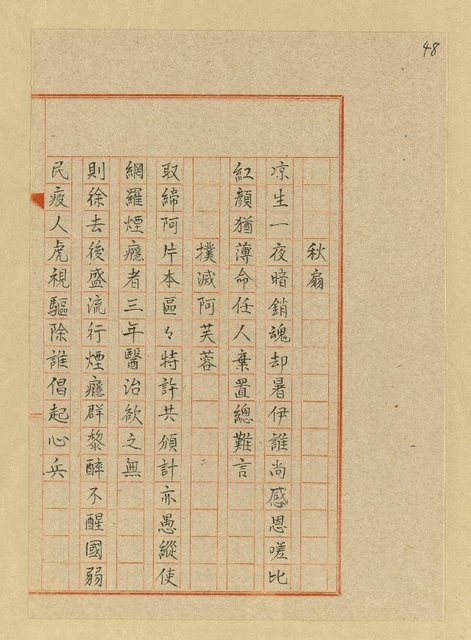 48
秋扇
凉生一夜暗銷魂却暑伊誰尚感恩嗟比
紅顏猶薄命任人棄置總難言
撲滅阿芙蓉
取締阿片本區々特許共頒計亦愚縱使
網羅煙癮者三年醫治欲之無
則徐去後盛流行煙癮群黎醉不醒國弱
民疲人虎視驅除誰倡起心兵